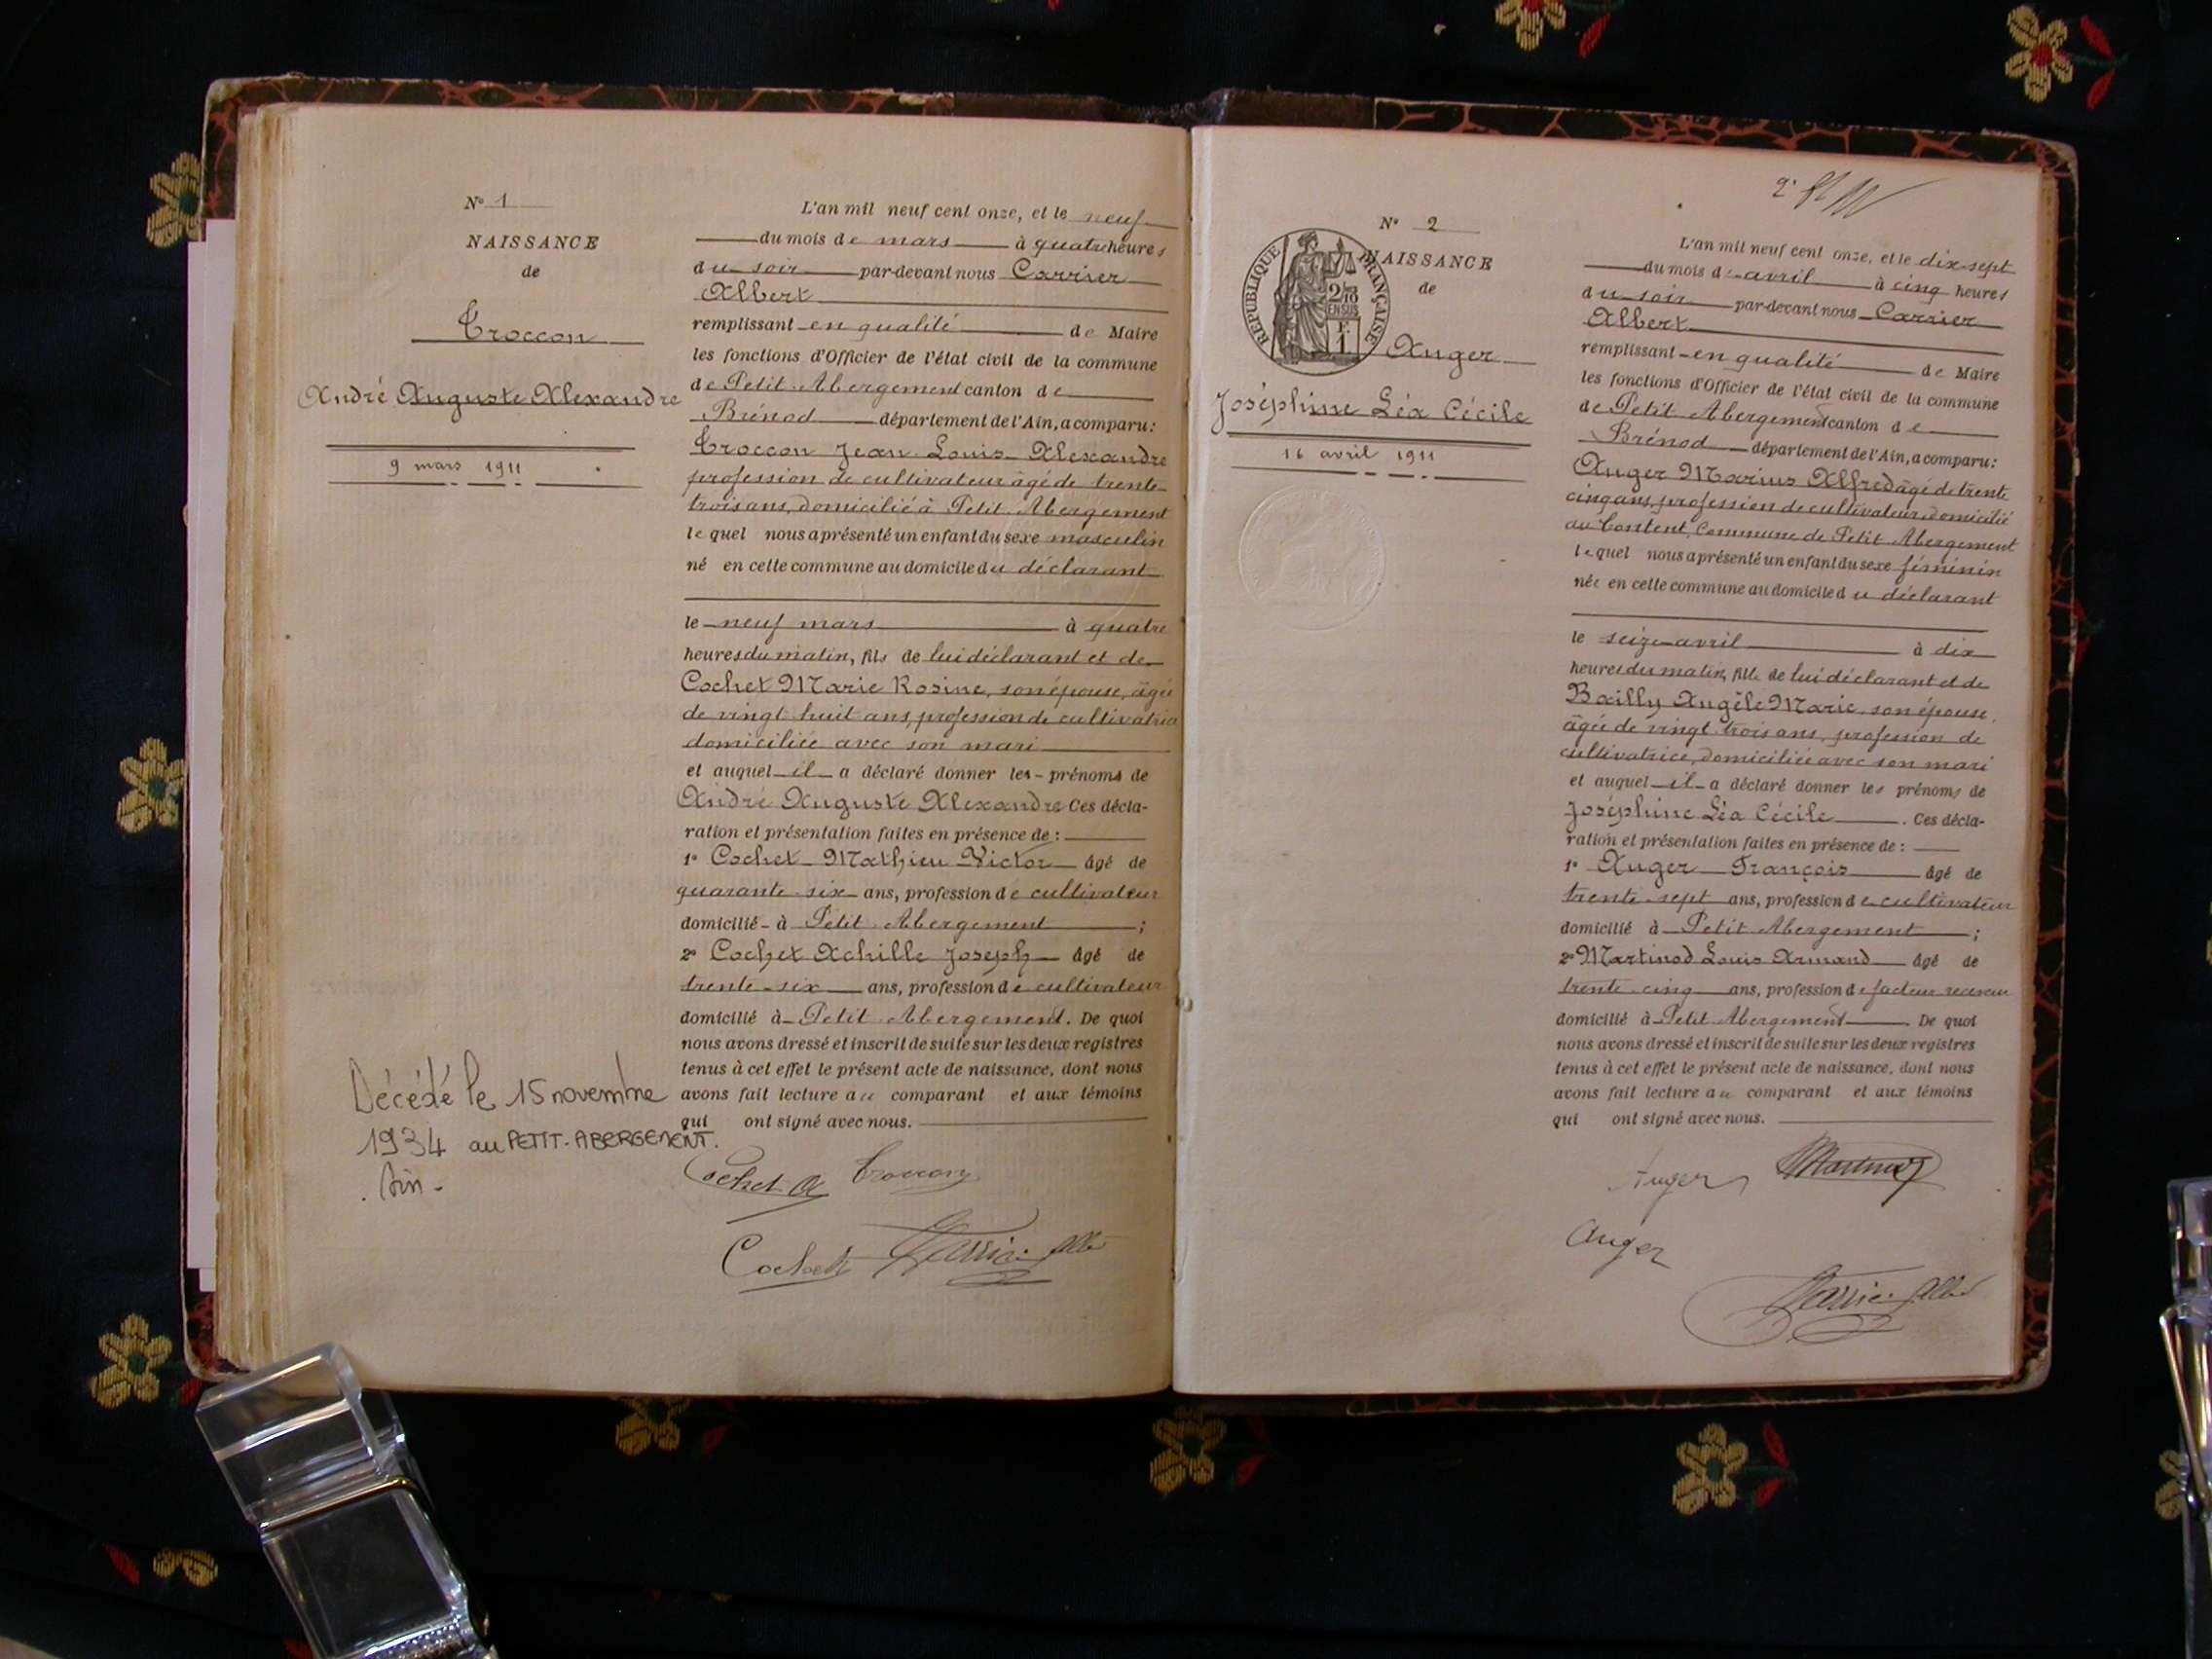 N° 1
NAISSANCE
de
Troccon
André Auguste Alexandre
9 mars 1911
Décédé le 15 novembre
1934 au PETIT-ABERGEMENT.
Ain.
L'an mil neuf cent onze, et le neuf
du mois de mars à quatre heures
du soir par-devant nous Carrier
Albert
remplissant en qualité de Maire
les fonctions d'Officier de l'état civil de la commune
de Petit-Abergement canton de
Brénod département de l'Ain, a comparu:
Troccon Jean Louis Alexandre
profession de cultivateur âgé de trente-
trois ans, domicilié à Petit-Abergement
lequel nous a présenté un enfant du sexe masculin
né en cette commune au domicile du déclarant
le neuf mars à quatre
heures du matin, fils de lui déclarant et de
Cochet Marie Rosine, son épouse, âgée
de vingt huit ans, profession de cultivatrice
domiciliée avec son mari
et auquel il a déclaré donner les prénoms de
André Auguste Alexandre Ces décla-
ration et présentation faites en présence de :
1° Cochet Mathieu Victor âgé de
quarante-six ans, profession de cultivateur
domicilié à Petit-Abergement ;
2° Cochet Achille Joseph âgé de
trente-six ans, profession de cultivateur
domicilié à Petit-Abergement. De quoi
nous avons dressé et inscrit de suite sur les deux registres
tenus à cet effet le présent acte de naissance, dont nous
avons fait lecture au comparant et aux témoins
qui ont signé avec nous.
Cochet A Troccon
Cochet Carrier Albt
N° 2
RÉPUBLIQUE FRANÇAISE
2/10
EN SUS
F.
1
NAISSANCE
de
Auger
Joséphine Léa Cécile
16 avril 1911
L'an mil neuf cent onze, et le dix sept
du mois d'avril à cinq heures
du soir par-devant nous Carrier
Albert
remplissant en qualité de Maire
les fonctions d'Officier de l'état civil de la commune
de Petit-Abergement canton de
Brénod département de l'Ain, a comparu:
Auger Marius Alfred âgé de trente
cinq ans, profession de cultivateur, domicilié
au Content, Commune de Petit-Abergement
lequel nous a présenté un enfant du sexe féminin
née en cette commune au domicile du déclarant
le seize avril à dix
heures du matin, fille de lui déclarant et de
Bailly Angèle Marie, son épouse,
âgée de vingt trois ans, profession de
cultivatrice, domiciliée avec son mari
et auquel il a déclaré donner les prénoms de
Joséphine Léa Cécile . Ces décla-
ration et présentation faites en présence de :
1° Auger François âgé de
trente-sept ans, profession de cultivateur
domicilié à Petit-Abergement ;
2° Martinod Louis Armand âgé de
trente-cinq ans, profession de facteur receveur
domicilié à Petit-Abergement De quoi
nous avons dressé et inscrit de suite sur les deux registres
tenus à cet effet le présent acte de naissance, dont nous
avons fait lecture au comparant et aux témoins
qui ont signé avec nous.
Auger Martinod
Auger
Carrier Albt